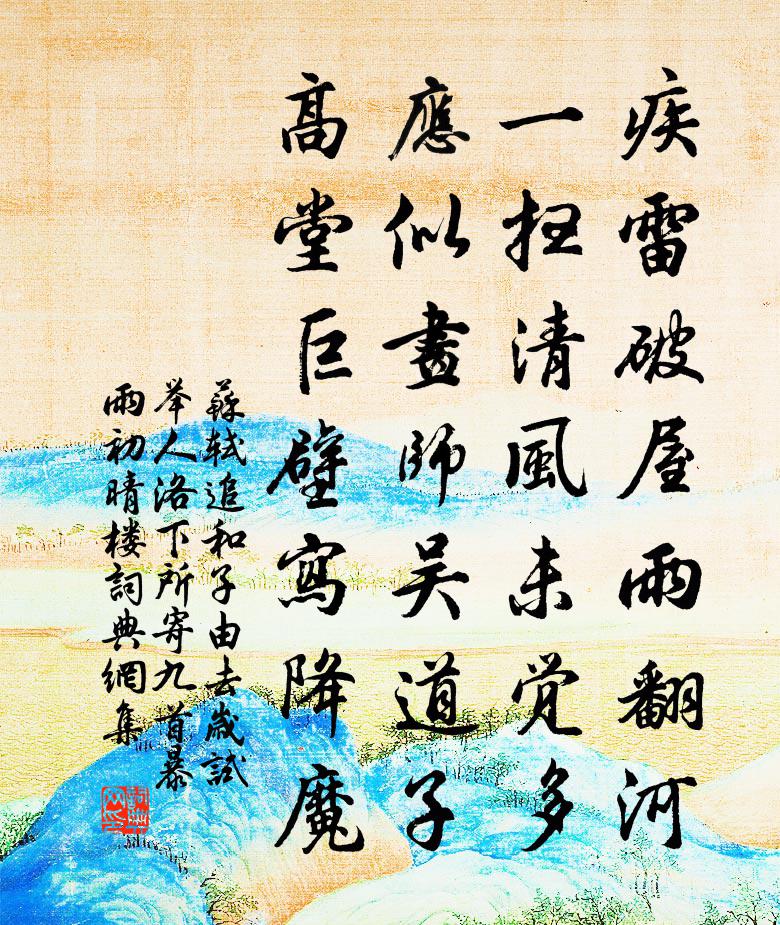 疾雷破屋雨翻河
一扫清風未觉多
應似畫師吴道子
高堂巨壁寫降魔
蘇轼追和子由去歲試
举人洛下所寄九首暴
雨初晴楼詞典網集